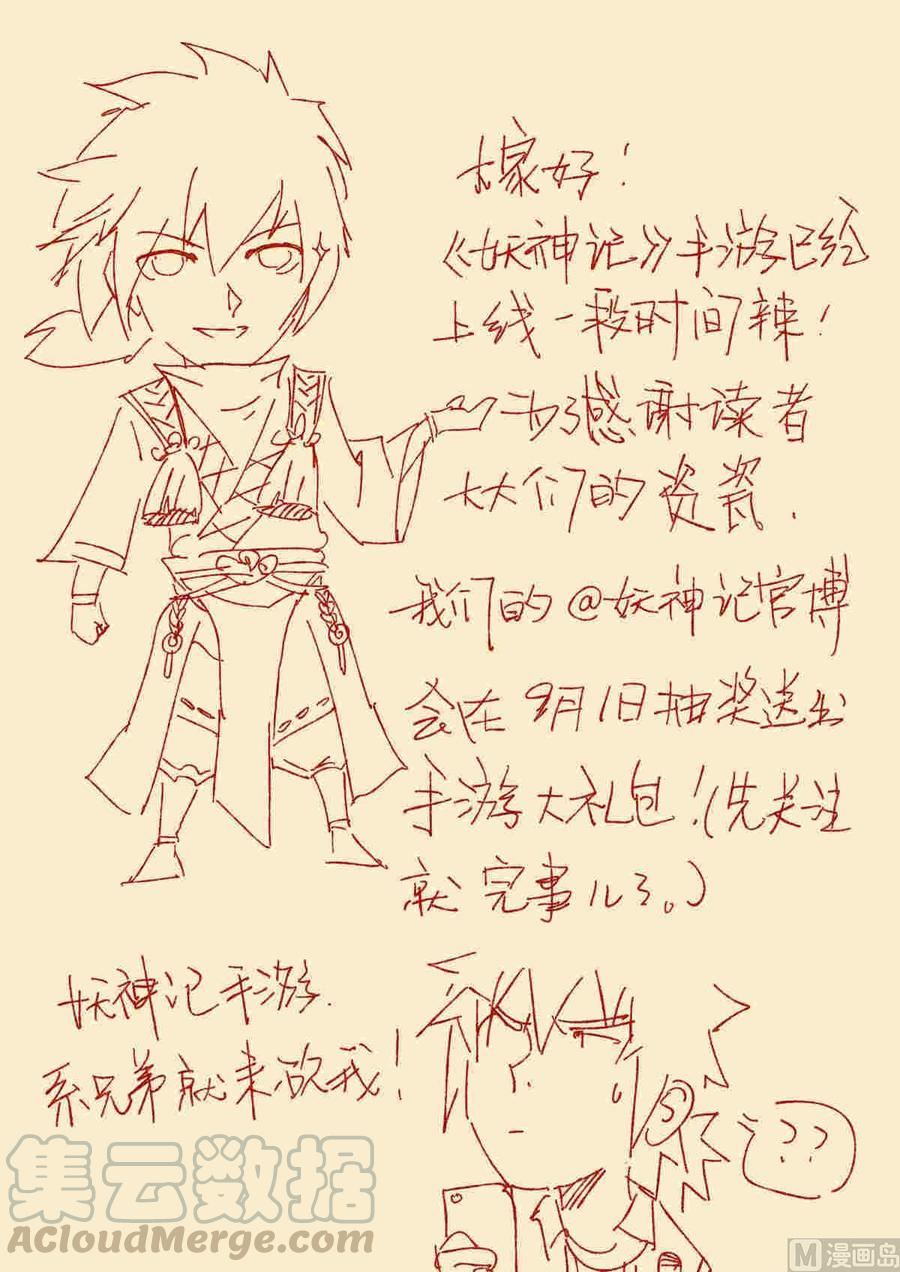 大家好！
《妖神记》手游已经
上线一段时间辣！
为了感谢读者
大大们的资瓷．
我们的@妖神记官博
会在9月1日抽奖送出
手游大礼包！(先关注
就完事儿了。)
妖神记手游．
系兄弟就来砍我！
??
集云数据
ACloudMerge.com
M漫画岛